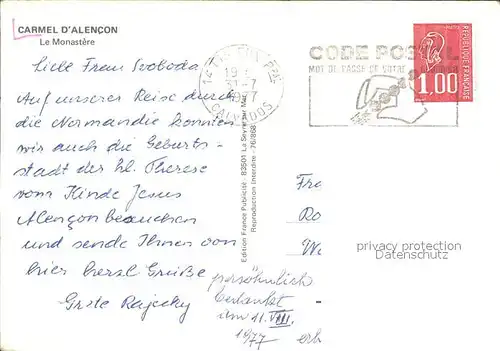 CARMEL D'ALENÇON
Le Monastère
Liebe Frau Svoboda
Auf unserer Reise durch
die Normandie konnten
wir auch die Geburts-
stadt der hl. Therese
vom Kinde Jesus
Alençon besuchen
und sende Ihnen von
hier herzl. Grüße
Grete Rajecky
persönlich
bedankt
am 11. VIII.
1977
Edition France Publicité - 83501 La Seyne sur Mer
Reproduction interdite - 76/868
14
CALVADOS
CODE POSTAL
MOT DE PASSE DE VOTRE
1,00
REPUBLIQUE FRANÇAISE
Fra
Ro
privacy protection
Datenschutz